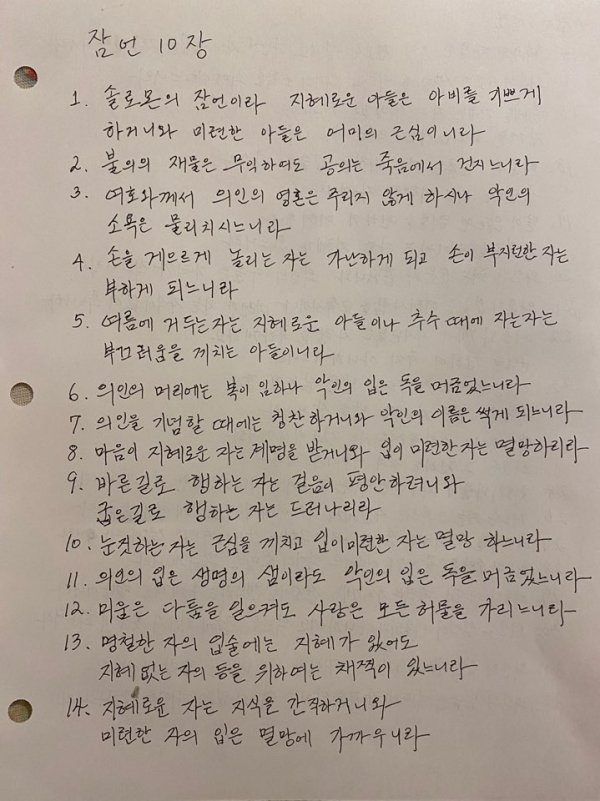 잠언 10장
1. 솔로몬의 잠언이라 지혜로운 아들은 아비를 기쁘게
하거니와 미련한 아들은 어미의 근심이니라
2. 불의의 재물은 무익하여도 공의는 죽음에서 건지느니라
3. 여호와께서 의인의 영혼은 주리지 않게 하시나 악인의
소욕은 물리치시느니라
4. 손을 게으르게 놀리는 자는 가난하게 되고 손이 부지런한 자는
부하게 되느니라
5. 여름에 거두는 자는 지혜로운 아들이나 추수 때에 자는자는
부끄러움을 끼치는 아들이니라
6. 의인의 머리에는 복이 임하나 악인의 입은 독을 머금었느니라
7. 의인을 기념할 때에는 칭찬하거니와 악인의 이름은 썩게 되느니라
8. 마음이 지혜로운 자는 계명을 받거니와 입이 미련한 자는 멸망하리라
9. 바른길로 행하는 자는 걸음이 평안하려니와
굽은길로 행하는 자는 드러나리라
10. 눈짓하는 자는 근심을 끼치고 입이 미련한 자는 멸망 하느니라
11. 의인의 입은 생명의 샘이라도 악인의 입은 독을 머금었느니라
12. 미움은 다툼을 일으켜도 사랑은 모든 허물을 가리느니라
13. 명철한 자의 입술에는 지혜가 있어도
지혜 없는 자의 등을 위하여는 채찍이 있느니라
14. 지혜로운 자는 지식을 간직하거니와
미련한 자의 입은 멸망에 가까우니라